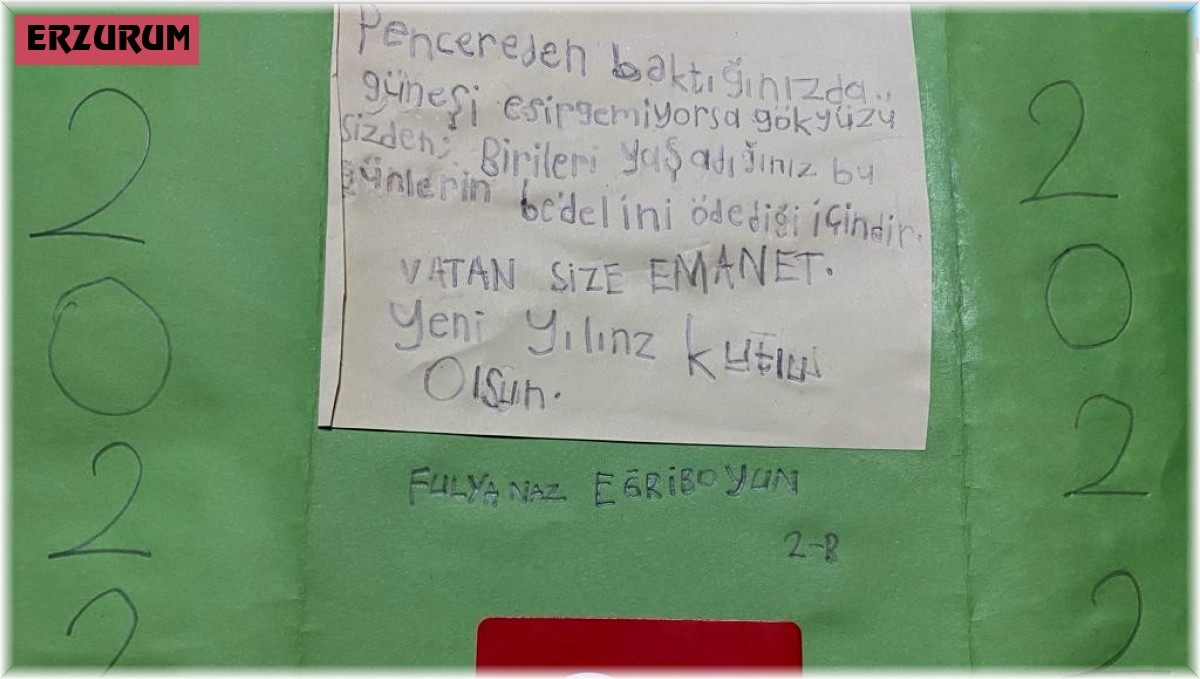 ERZURUM
Pencereden baktığınızda..
güneşi esirgemiyorsa gökyüzü
sizden; Birileri yaşadığınız bu
günlerin bedelini ödediği içindir.
VATAN SİZE EMANET.
Yeni yılınz kutlu
Olsun.
FULYANAZ EĞRİBOYUN
2-B
2
0
2
2
2
0
2
2